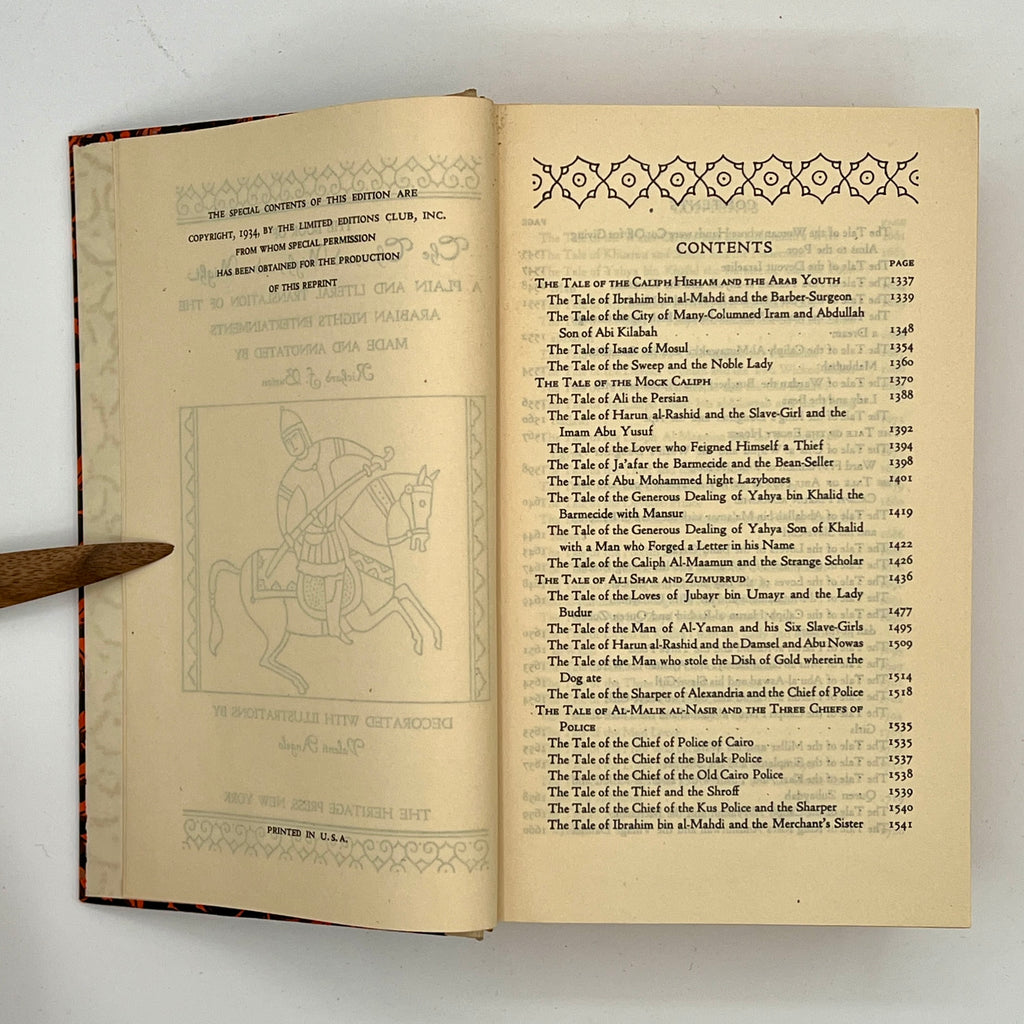 THE SPECIAL CONTENTS OF THIS EDITION ARE
COPYRIGHT, 1934, BY THE LIMITED EDITIONS CLUB, INC.
FROM WHOM SPECIAL PERMISSION
HAS BEEN OBTAINED FOR THE PRODUCTION
OF THIS REPRINT
A PLAIN AND LITERAL TRANSLATION OF THE
ARABIAN NIGHTS ENTERTAINMENTS
MADE AND ANNOTATED BY
Richard F. Burton
DECORATED WITH ILLUSTRATIONS BY
Valenti Angelo
THE HERITAGE PRESS, NEW YORK
PRINTED IN U.S.A.
CONTENTS
PAGE
THE TALE OF THE CALIPH HISHAM AND THE ARAB YOUTH 1337
The Tale of Ibrahim bin al-Mahdi and the Barber-Surgeon 1339
The Tale of the City of Many-Columned Iram and Abdullah
Son of Abi Kilabah 1348
The Tale of Isaac of Mosul 1354
The Tale of the Sweep and the Noble Lady 1360
THE TALE OF THE MOCK CALIPH 1370
The Tale of Ali the Persian 1388
The Tale of Harun al-Rashid and the Slave-Girl and the
Imam Abu Yusuf 1392
The Tale of the Lover who Feigned Himself a Thief 1394
The Tale of Ja'afar the Barmecide and the Bean-Seller 1398
The Tale of Abu Mohammed hight Lazybones 1401
The Tale of the Generous Dealing of Yahya bin Khalid the
Barmecide with Mansur 1419
The Tale of the Generous Dealing of Yahya Son of Khalid
with a Man who Forged a Letter in his Name 1422
The Tale of the Caliph Al-Maamun and the Strange Scholar 1426
THE TALE OF ALI SHAR AND ZUMURRUD 1436
The Tale of the Loves of Jubayr bin Umayr and the Lady
Budur 1477
The Tale of the Man of Al-Yaman and his Six Slave-Girls 1495
The Tale of Harun al-Rashid and the Damsel and Abu Nowas 1509
The Tale of the Man who stole the Dish of Gold wherein the
Dog ate 1514
The Tale of the Sharper of Alexandria and the Chief of Police 1518
THE TALE OF AL-MALIK AL-NASIR AND THE THREE CHIEFS OF
POLICE 1535
The Tale of the Chief of Police of Cairo 1535
The Tale of the Chief of the Bulak Police 1537
The Tale of the Chief of the Old Cairo Police 1538
The Tale of the Thief and the Shroff 1539
The Tale of the Chief of the Kus Police and the Sharper 1540
The Tale of Ibrahim bin al-Mahdi and the Merchant's Sister 1541